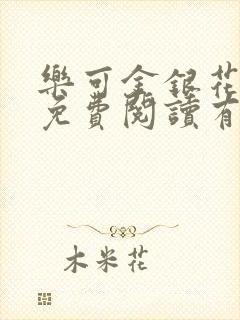 樂可金銀花
免費閱讀有
木米花